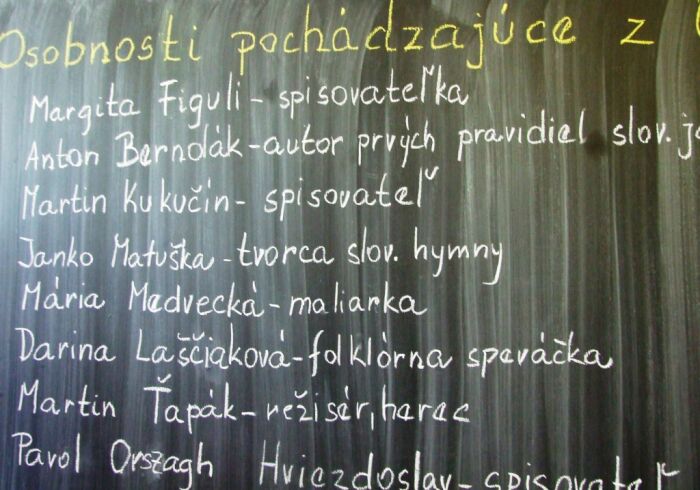 Osobnosti pochádzajúce z
Margita Figuli - spisovateľka
Anton Bernolák - autor prvých pravidiel slov.
Martin Kukučín - spisovateľ
Janko Matuška - tvorca slov. hymny
Mária Medvecká - maliarka
Darina Laščiaková - folklórna speváčka
Martin Ťapák - režisér, herec
Pavol Orszagh Hviezdoslav - spisovateľ